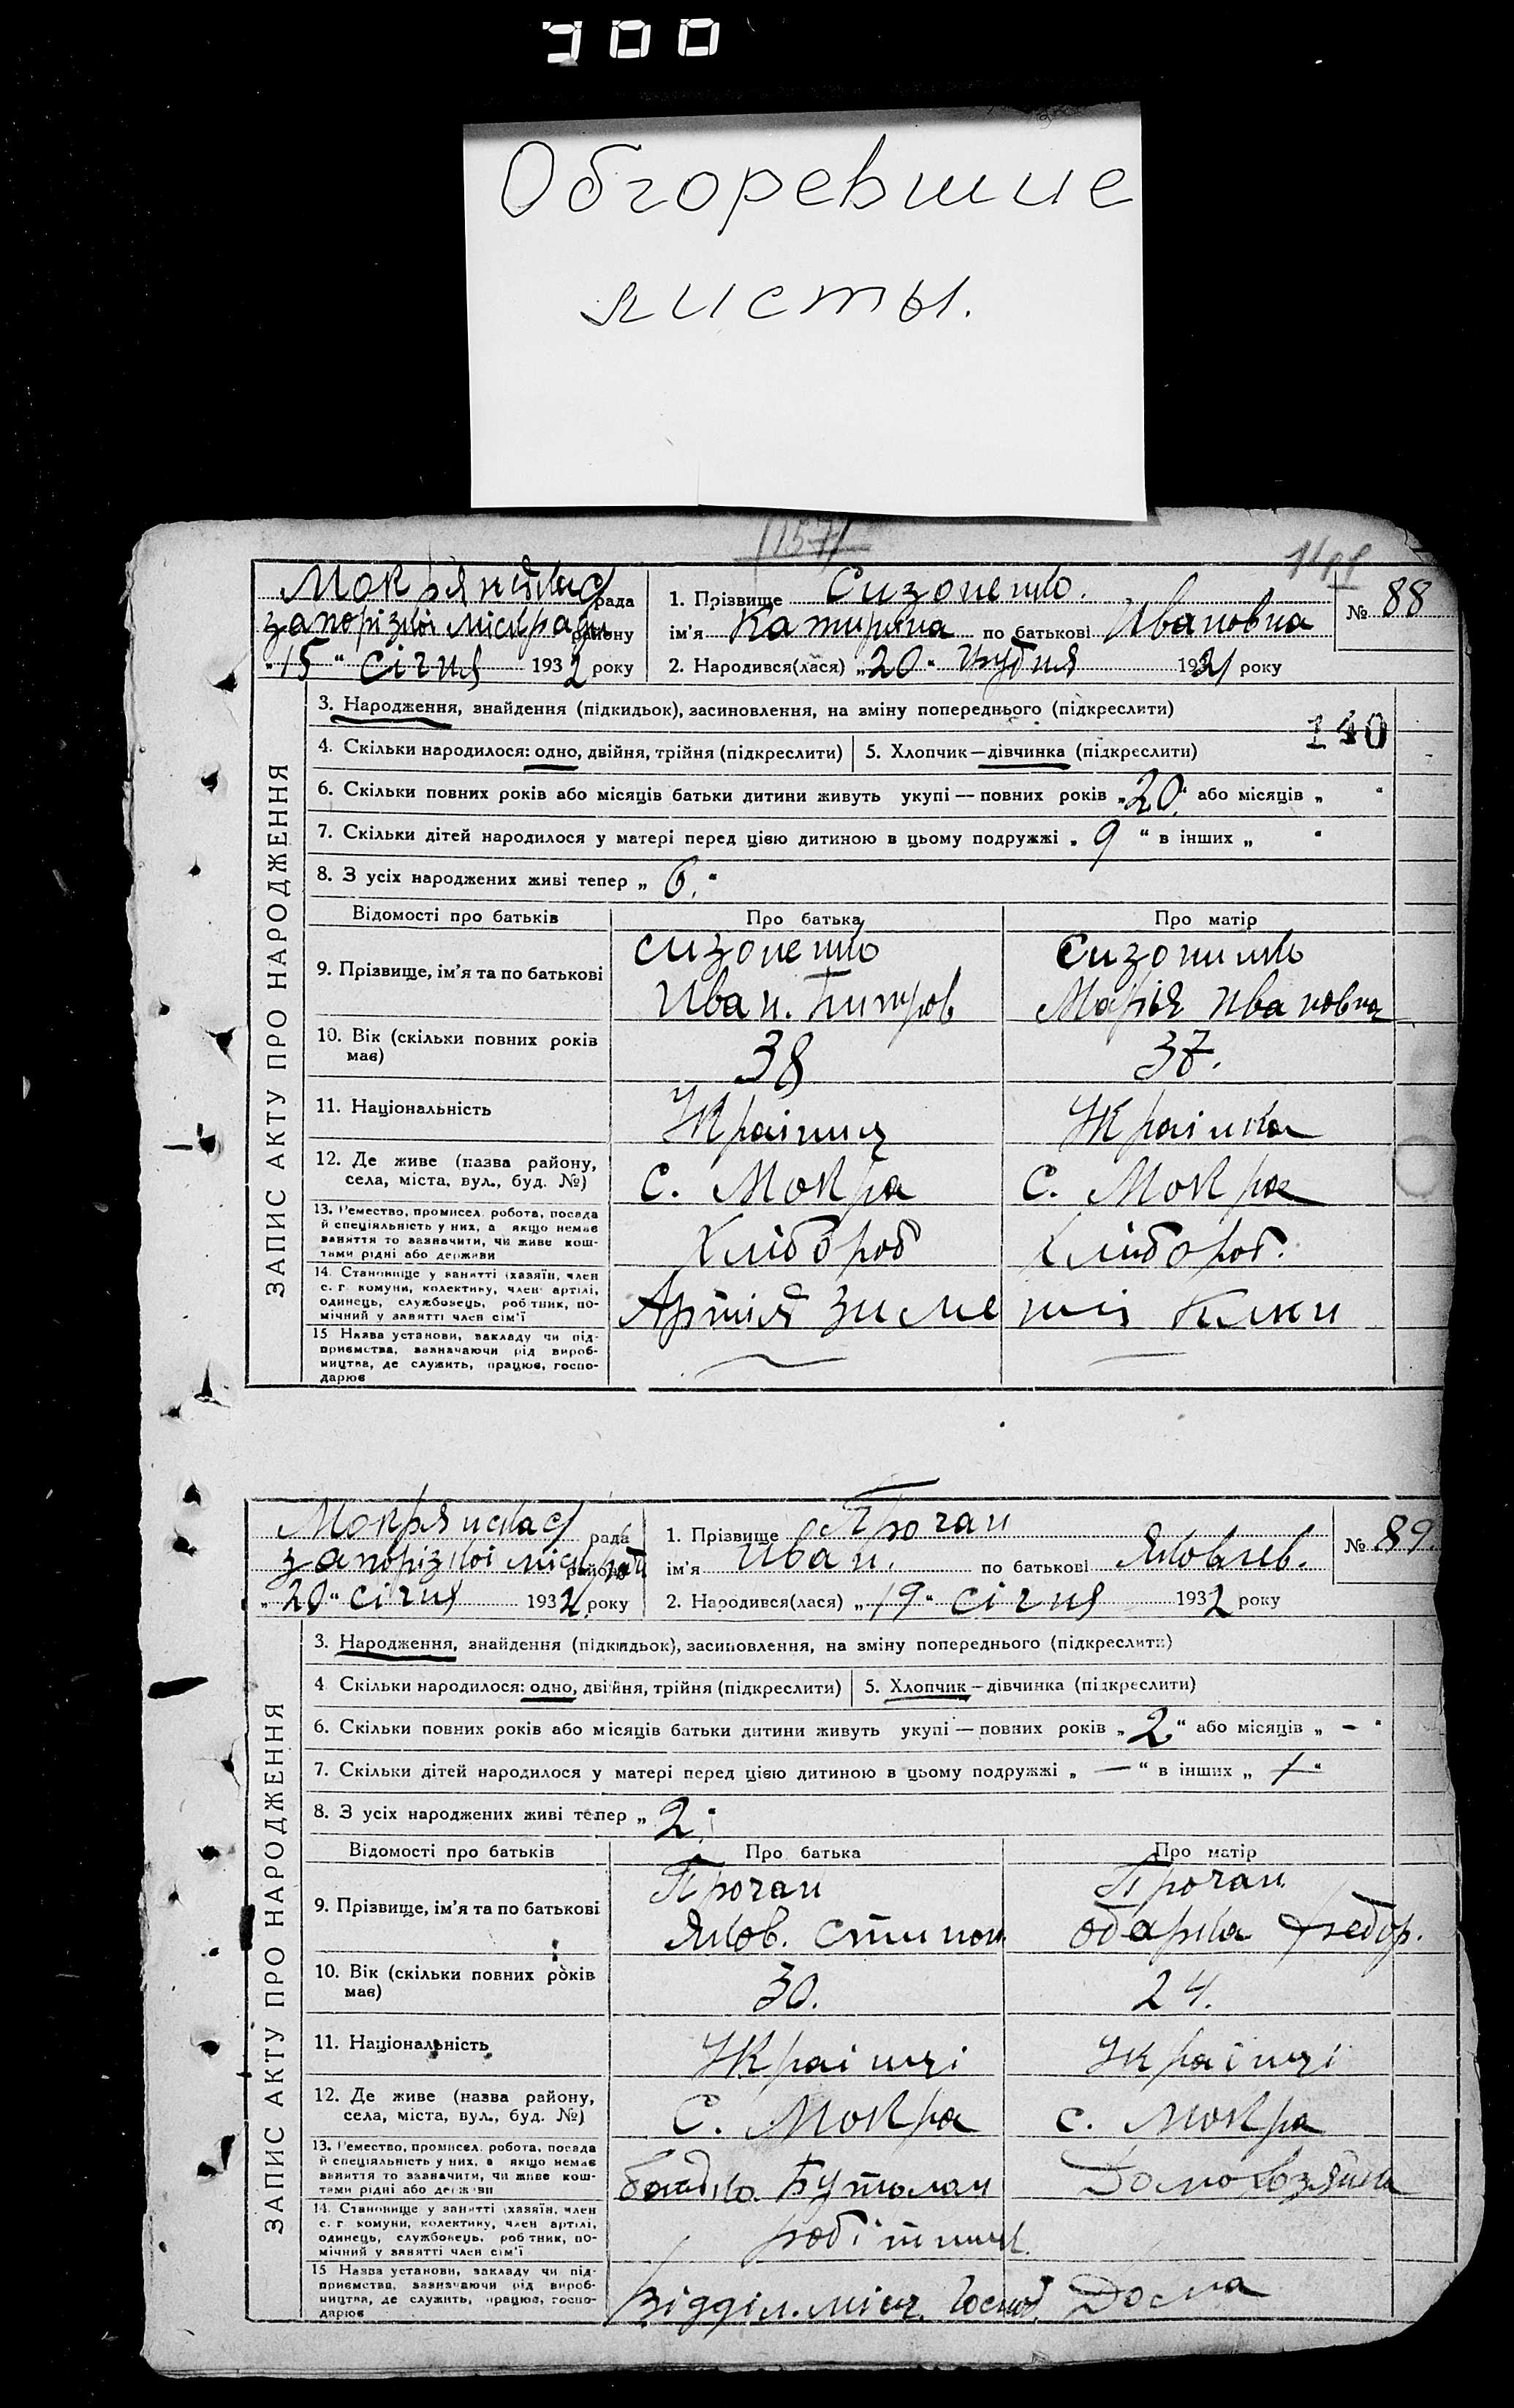 300
Обгоревшие
листы.
1157
Мокрянська рада
запорізької міськради району
"15" січня 1932 року
1. Прізвище Сизоненко.
ім'я Катирина по батькові Ивановна
№ 88
2. Народився(лася) "20" грудня 1931 року
3. Народження, знайдення (підкидьок), засиновлення, на зміну попереднього (підкреслити)
140
4. Скільки народилося: одно, двійня, трійня (підкреслити) 5. Хлопчик—дівчинка (підкреслити)
6. Скільки повних років або місяців батьки дитини живуть укупі—повних років „20" або місяців „ "
7. Скільки дітей народилося у матері перед цією дитиною в цьому подружжі „9" в інших „ "
8. З усіх народжених живі тепер „6."
ЗАПИС АКТУ ПРО НАРОДЖЕННЯ
Відомості про батьків Про батька Про матір
9. Прізвище, ім'я та по батькові
сизоненко Сизонинко
Иван. Питров Марія Ивановна
10. Вік (скільки повних років має) 38 37.
11. Національність Україниц Українка
12. Де живе (назва району, села, міста, вул., буд. №) с. Мокра с. Мокра
13. Ремество, промисел, робота, посада й спеціяльність у них, а якщо немає заняття то зазначити, чи живе коштами рідні або держави Хлібороб Хлібороб.
14. Становище у занятті (хазяїн, член с.-г. комуни, колективу, член артілі, одинець, службовець, робітник, помічний у занятті член сім'ї Артіль
15 Назва установи, закладу чи підприємства, зазначаючи рід виробництва, де служить, працює, господарює
Мокрянська рада
запорізької міськрад району
"20" січня 1932 року
1. Прізвище Прочан
ім'я Иван. по батькові Яковлев.
№ 89.
2. Народився(лася) „19" січня 1932 року
3. Народження, знайдення (підкидьок), засиновлення, на зміну попереднього (підкреслити)
4. Скільки народилося: одно, двійня, трійня (підкреслити) 5. Хлопчик—дівчинка (підкреслити)
6. Скільки повних років або місяців батьки дитини живуть укупі—повних років „2" або місяців „-"
7. Скільки дітей народилося у матері перед цією дитиною в цьому подружжі „—" в інших „1"
8. З усіх народжених живі тепер „2."
ЗАПИС АКТУ ПРО НАРОДЖЕННЯ
Відомості про батьків Про батька Про матір
9. Прізвище, ім'я та по батькові
Прочан Прочан
Яков. Стипан Одарка Федор.
10. Вік (скільки повних років має) 30. 24.
11. Національність Українці Українці
12. Де живе (назва району, села, міста, вул., буд. №) С. Мокра с. Мокра
13. Ремество, промисел, робота, посада й спеціяльність у них, а якщо немає заняття то зазначити, чи живе коштами рідні або держави Домохазяйка
14. Становище у занятті (хазяїн, член с.-г. комуни, колективу, член артілі, одинець, службовець, робітник, помічний у занятті член сім'ї робітник.
15 Назва установи, закладу чи підприємства, зазначаючи рід виробництва, де служить, працює, господарює Відділ. міськ. Господ. Дома